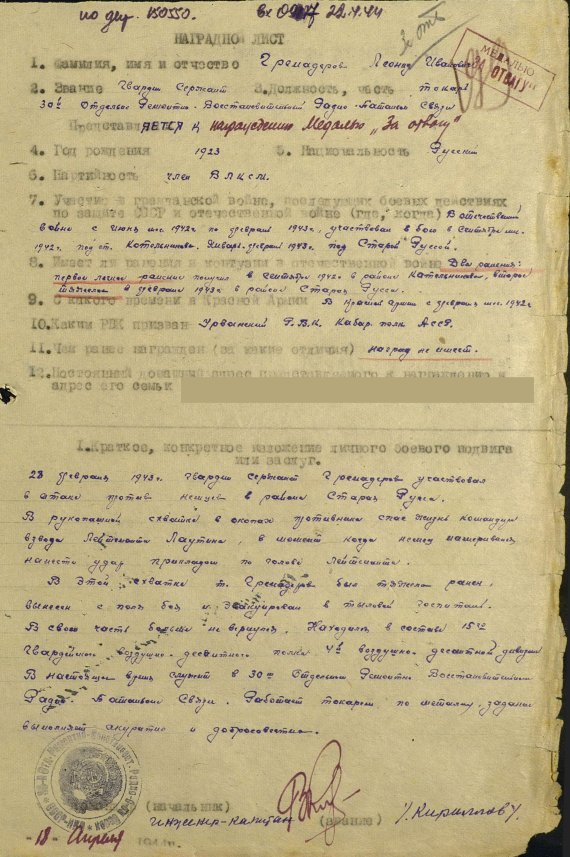 по деп. 150550. вх 22.4.44
НАГРАДНОЙ ЛИСТ
МЕДАЛЬЮ
"ЗА ОТВАГУ"
1. Фамилия, имя и отчество Гремадеров Леонид Иванович
2. Звание Гвардии Сержант 3. Должность, часть токарь
30й Отдельн Ремонтно-Восстановительный Радио-Батальон Связи
Представляется к награждению Медалью „За отвагу"
4. Год рождения 1923 5. Национальность Русский
6. Партийность член ВЛКСМ.
7. Участие в гражданской войне, последующих боевых действиях
по защите СССР и отечественной войне (где, когда) В отечественной
войне с июня м-ца 1942г по февраль 1943г, участвовал в бою в сентябре м-це
1942г. под ст. Котельниково. Январь, февраль 1943г. под Старой Руссой.
8. Имеет ли ранения и контузии в отечественной войне Два ранения:
первое легкое ранение получил в сентябре 1942г в районе Котельниково, второе
тяжелое в феврале 1943г в районе Старая Русса.
9. С какого времени в Красной Армии В Красной Армии с февраля м-ца 1942г
10. Каким РВК призван Урванский Р.В.К. Кабар. Балк АССР.
11. Чем ранее награжден (за какие отличия) наград не имеет.
12. Постоянный домашний адрес представляемого к награждению и
адрес его семьи
I. Краткое, конкретное изложение личного боевого подвига
или заслуг.
23 февраля 1943г. Гвардии сержант Гремадеров участвовал
в атаке против немцев в районе Старая Русса.
В рукопашной схватке в окопах противника спас жизнь командира
взвода Лейтенанта Лаутина, в момент когда немец намеривался
нанести удар прикладом по голове Лейтенанта.
В этой схватке т. Гремадеров был тяжело ранен,
вынесен с поля боя и эвакуирован в тыловой госпиталь.
В свою часть больше не вернулся. Находился в составе 15го
Гвардейского воздушно-десантного полка 4й воздушно-десантной дивизии
В настоящее время служит в 30м Отдельном Ремонтно Восстановительном
Радио-Батальоне Связи. Работает токарем по металлу, задание
выполняет акуратно и добросовестно.
(начальник)
инженер-капитан (звание) /Кириллов/.
"18" Апреля 1944г.